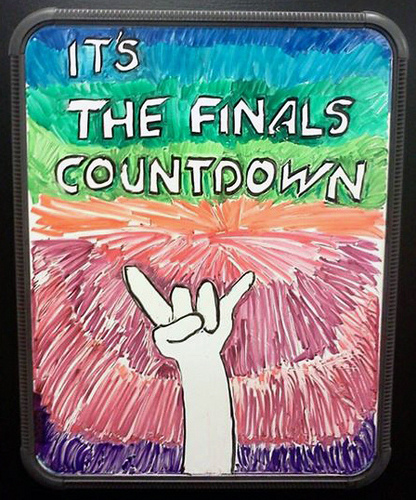 IT'S
THE FINALS
COUNTDOWN